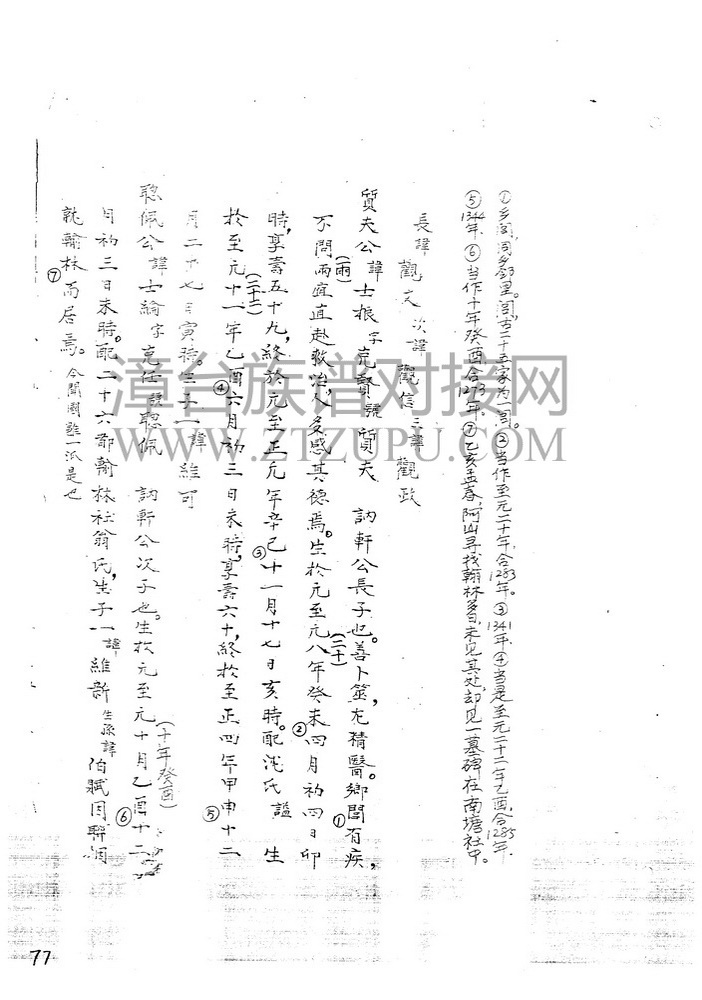 ①乡闾,同乡邻里。闾,古二十五家为一闾。②当作至元二十年,合1283年。③1341年④当是至元二十二年乙酉,合1285年.
⑤1344年.⑥当作十年癸酉合1273年.⑦乙亥孟春,阿山寻找翰林多日,未见其处,却见一墓碑在南塘社中。
長諱觀文 次諱觀信 三諱觀政
質夫公諱士根 字克賢 號質夫 訥軒公長子也。善卜筮,尤精醫。鄉閭①有疾,
不問兩(雨)宜直赴救治,人多感其德焉。生於元至元八(二十)年癸未②四月初四日卯
時,享壽五十九,終於元至正元年辛巳③十一月十七日亥時。配沈氏 謚 生
於至元十一(二十二)年乙酉④六月初三日未時,享壽六十,終於至正四年甲申⑤十二
月二十七日寅時。生子一諱維可
聰佩公諱士綸 字克任 號聰佩 訥軒公次子也。生於元至元十月乙酉(十年癸酉)⑥十二
月初三日未時。配二十六都翰林社翁氏,生子一諱維新 生孫諱伯賦因聯姻
就翰林而居焉。⑦今聞
漳台族谱对接网
WWW.ZTZUPU.COM
77